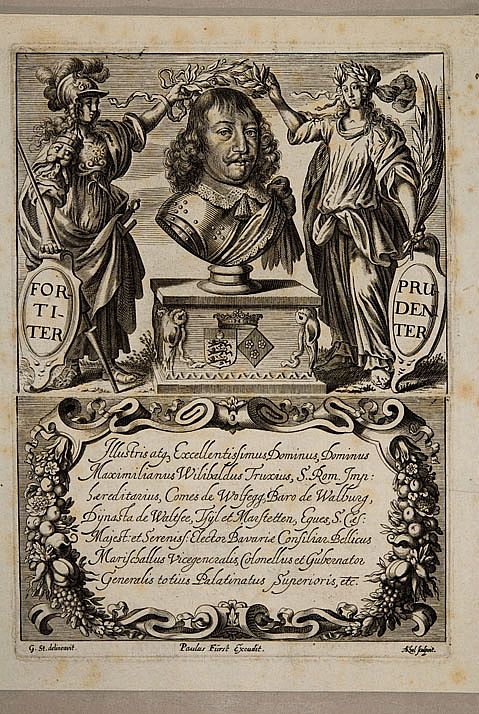 FOR
TI-
TER
PRU
DEN
TER
Illustris atq₃ Excellentissimus Dominus, Dominus
Maximilianus Wilibaldus Truxius, S. Rom. Imp:
Hæreditarius, Comes de Wolfegg, Baro de Walburg,
Dÿnasta de Waltsee, et Marstetten, Eques, S. Cæs:
Majest: et Serenis: Elector Bavariæ Consiliar. Bellicus
Marischallus Vicegeneralis, Colonellus et Gubernator
Generalis totius Palatinatus Superioris, etc.
G. St. delineavit.
Paulus Fürst Excudit.
sculpsit.